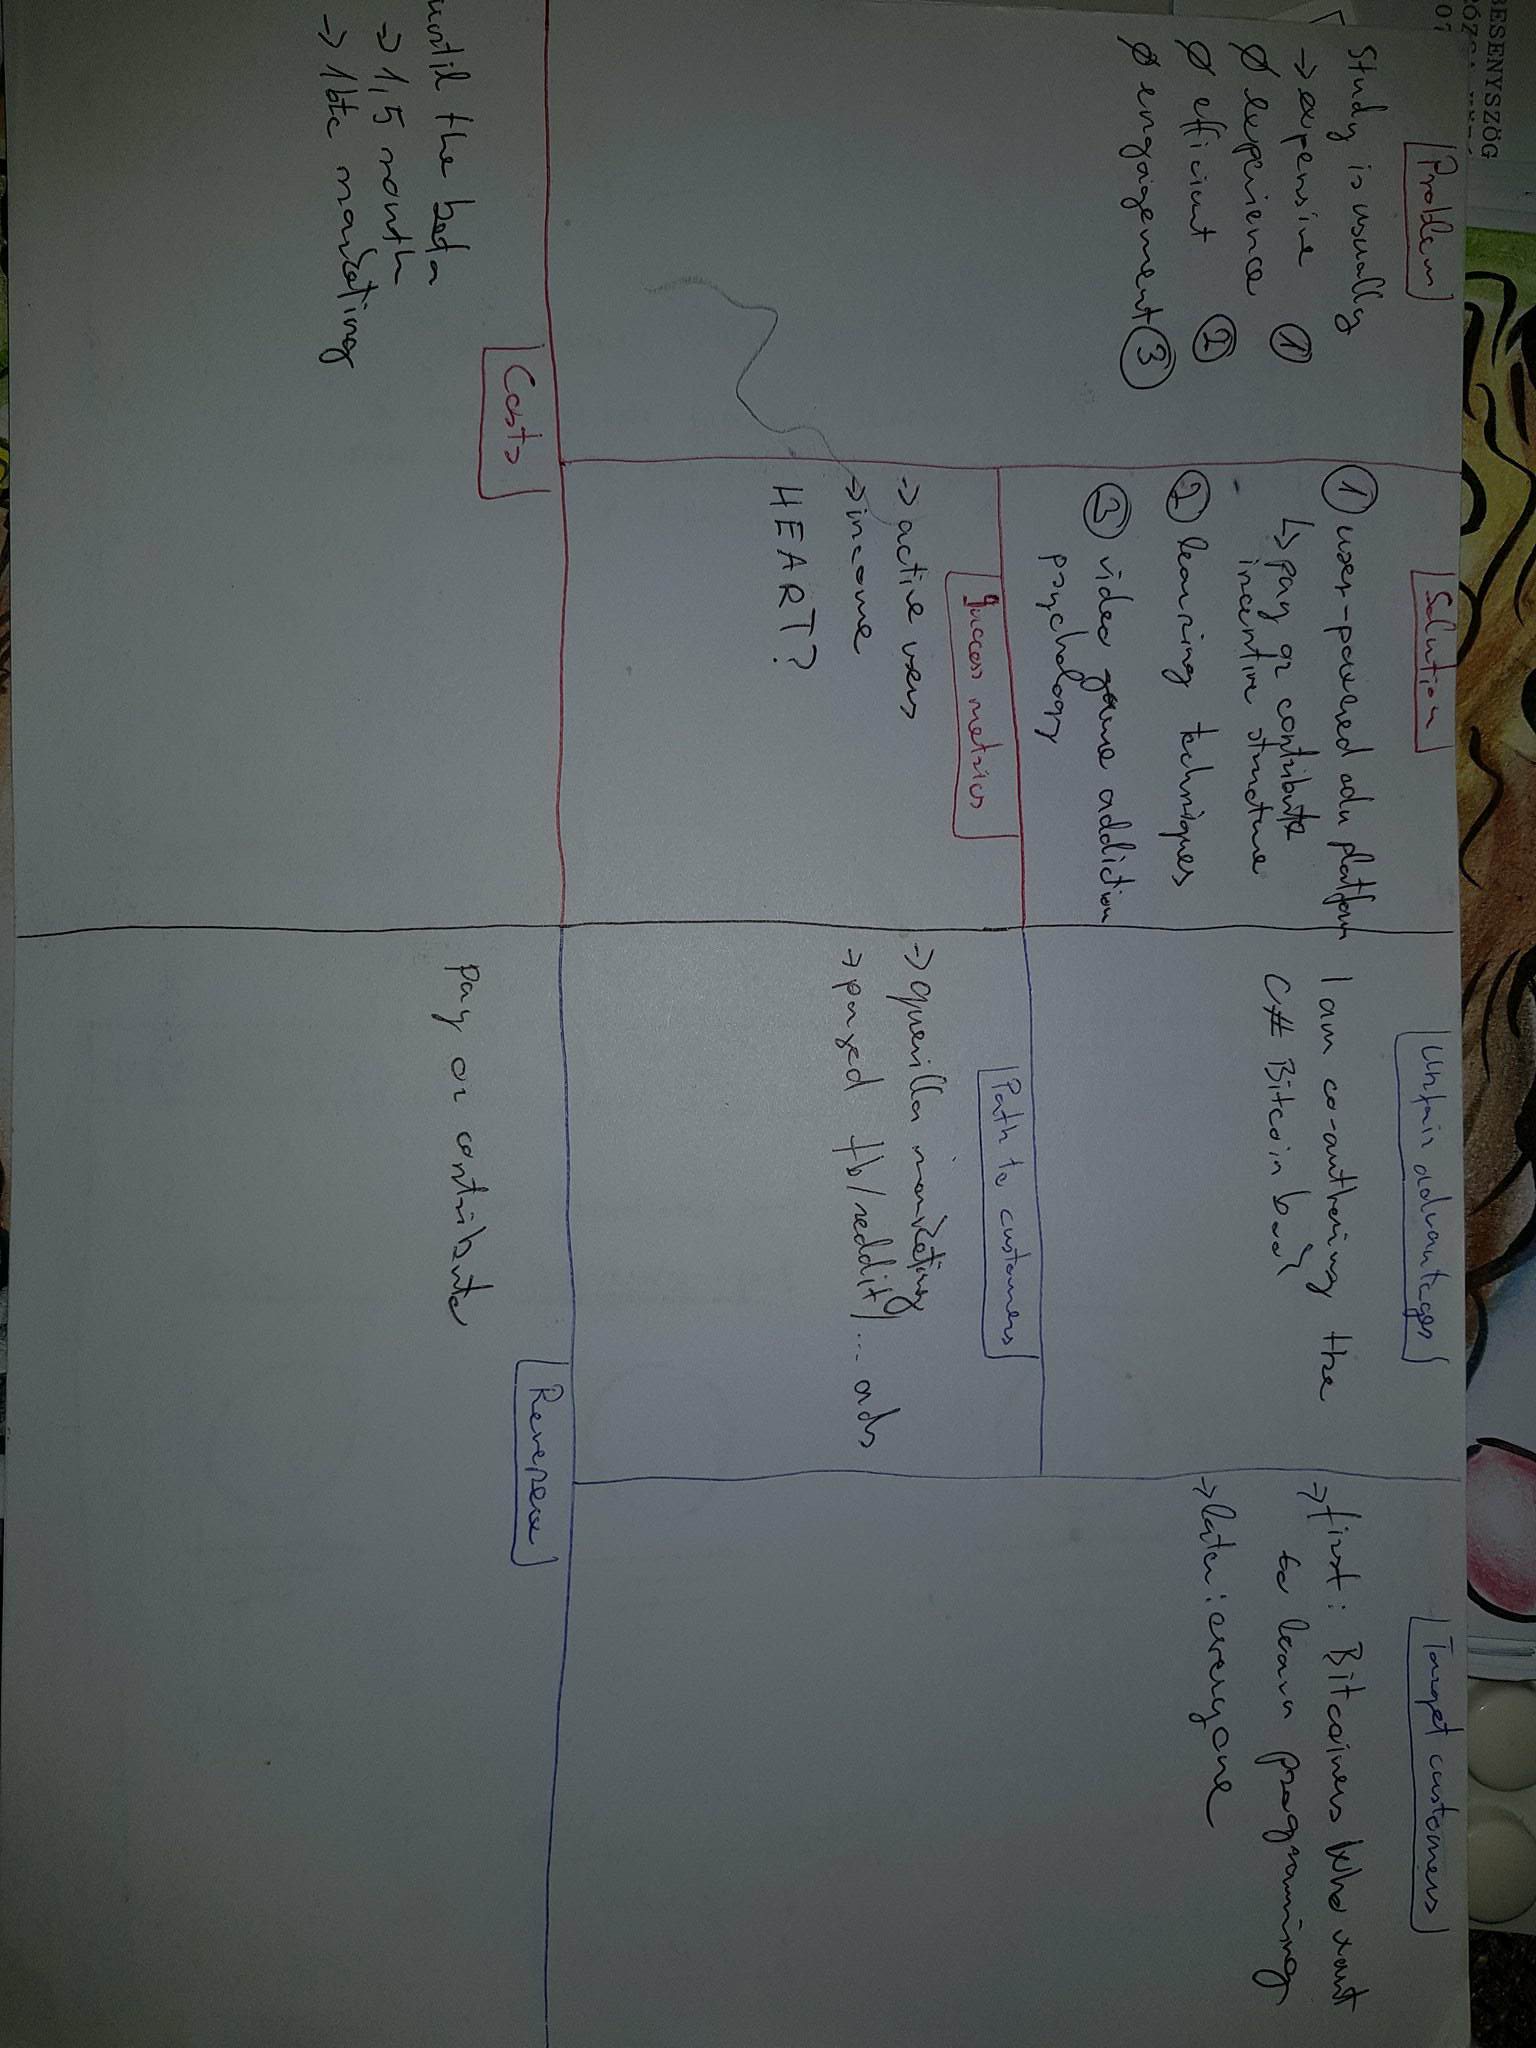 BESENYSZÖG
Problem
Study is usually
-> expensive ①
Ø experience
Ø efficient ②
Ø engagement ③
Solution
① user-powered edu platform
↳ pay or contribute
incentive structure
② learning techniques
③ video game addiction
psychology
Success metrics
-> active users
-> income
HEART?
Unfair advantages
I am co-authoring the
C# Bitcoin book
Path to customers
-> querilla marketing
-> payed fb/reddit/... ads
Target customers
-> first: Bitcoiners who want
to learn programming
-> later: everyone
Costs
until the beta
-> 1,5 month
-> 1btc marketing
Revenue
Pay or contribute